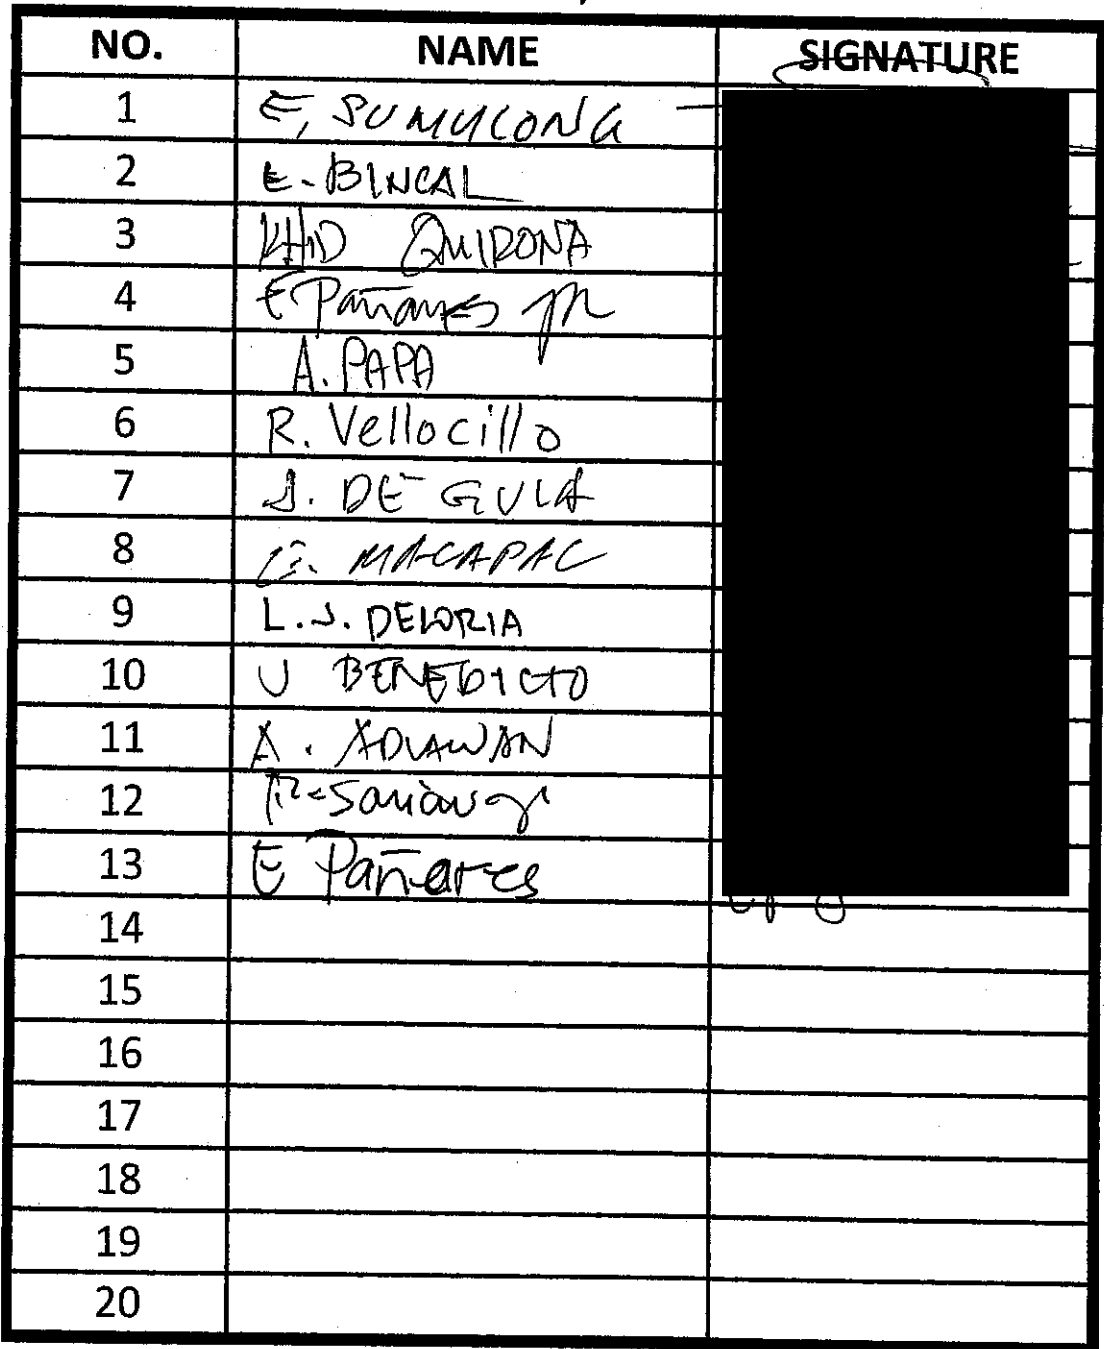 NO. NAME SIGNATURE
1 E, SUMYCONG
2 E. BINCAL
3 KHID QUIRONA
4 E Pañares Jr
5 A. PAPA
6 R. Vellocillo
7 J. DE GUIA
8 E. MACAPAC
9 L.J. DELORIA
10 U BENEDICTO
11 A. ADLAWAN
12
13 E Pañares
14
15
16
17
18
19
20